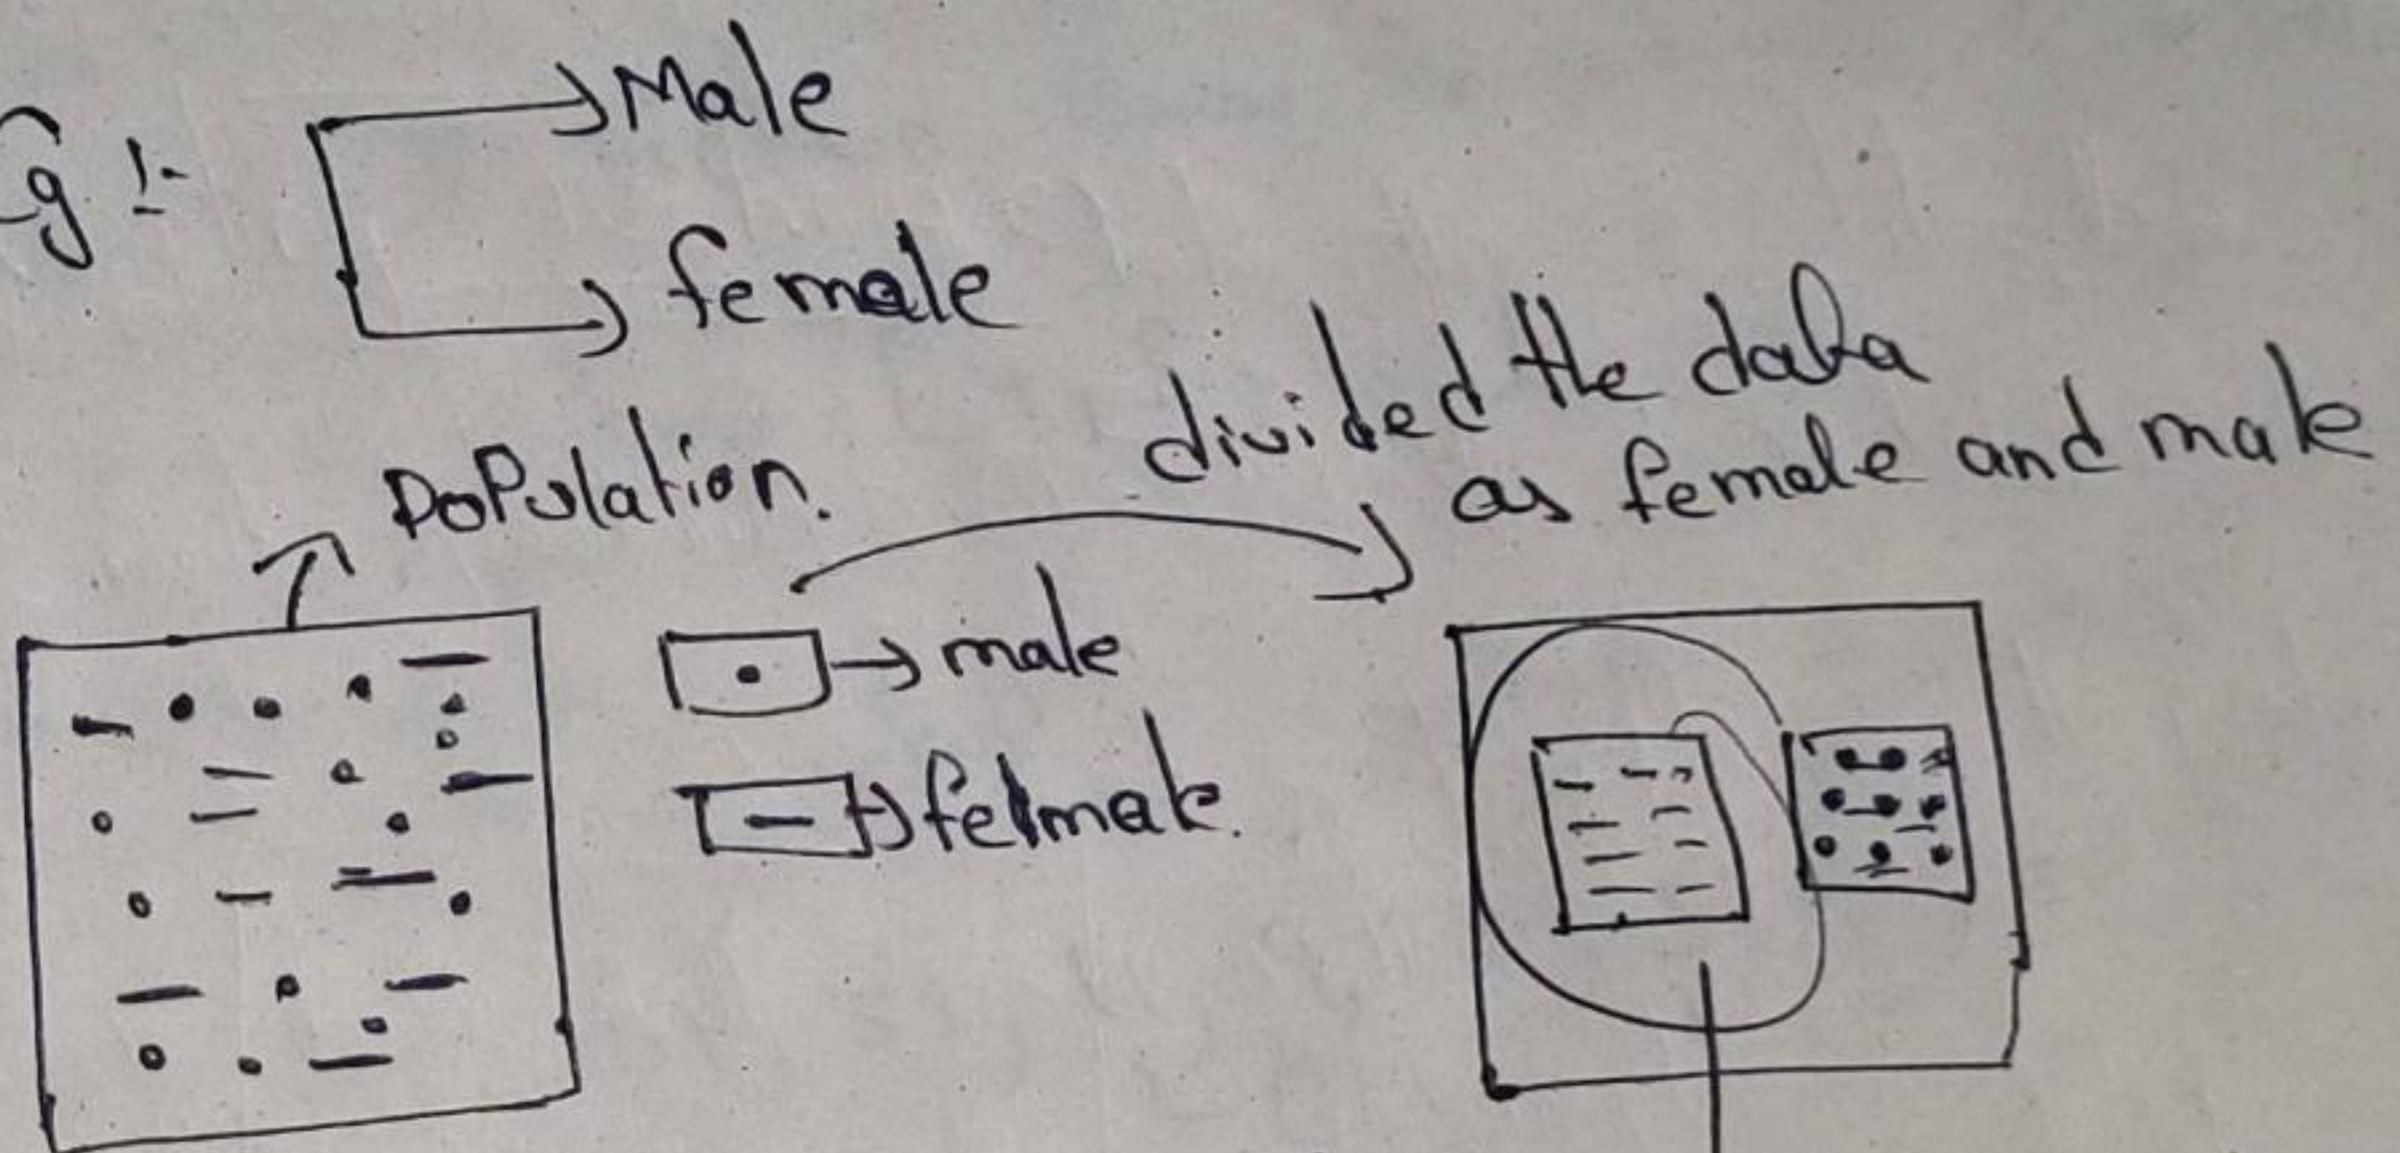 Eg :-
Male
female
Population.
divided the data
as female and male
male
felmale.